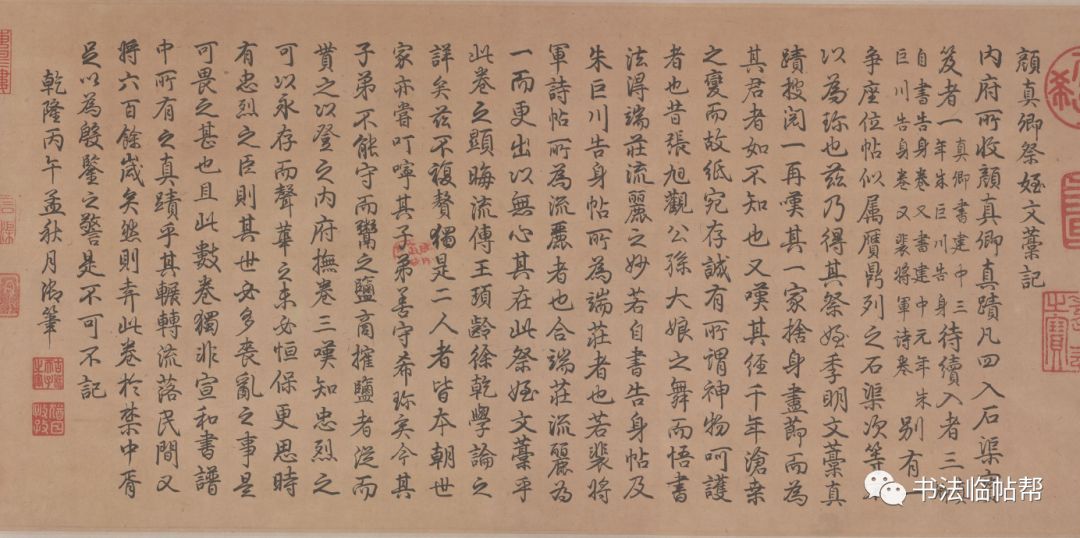 顔真卿祭姪文藁記
内府所收顔真卿真蹟凡四入石渠寶
笈者一真卿書建中三年朱巨川告身待續入者三
自書告身卷又書建中元年朱
巨川告身卷又裴将軍诗卷別有一
争座位帖似属贋鼎列之石渠次等
以為珎也兹乃得其祭姪季明文藁真
蹟搜閲一再嘆其一家捨身盡莭而為
其君者如不知也又嘆其經千年滄桒
之變而故紙宛存誠有所謂神物呵護
者也昔張旭觀公孫大娘之舞而悟書
法得端莊流麗之妙若自書告身帖及
朱巨川告身帖所為端莊者也若裴将
軍詩帖所為流麗者也合端莊流麗為
一而更出以無心其在此祭姪文藁乎
此卷之顕晦流傳王頊齡徐乾學論之
詳矣兹不複贅獨是二人者皆本朝世
家亦嘗叮嚀其子弟善守希珎矣今其
子弟不能守而鬻之鹽商搉鹽者從而
貰之以登之内府撫卷三嘆知忠烈之
可以永存而聲華之未必恒保更思時
有忠烈之臣則其世必多喪亂之事是
可畏之甚也且此數卷獨非宣和書譜
中所有之真蹟乎其輾轉流落民間又
将六百餘嵗矣然則弆此卷於禁中胥
足以為殷鑒之警是不可不記
乾隆丙午孟秋月御筆
书法临帖帮